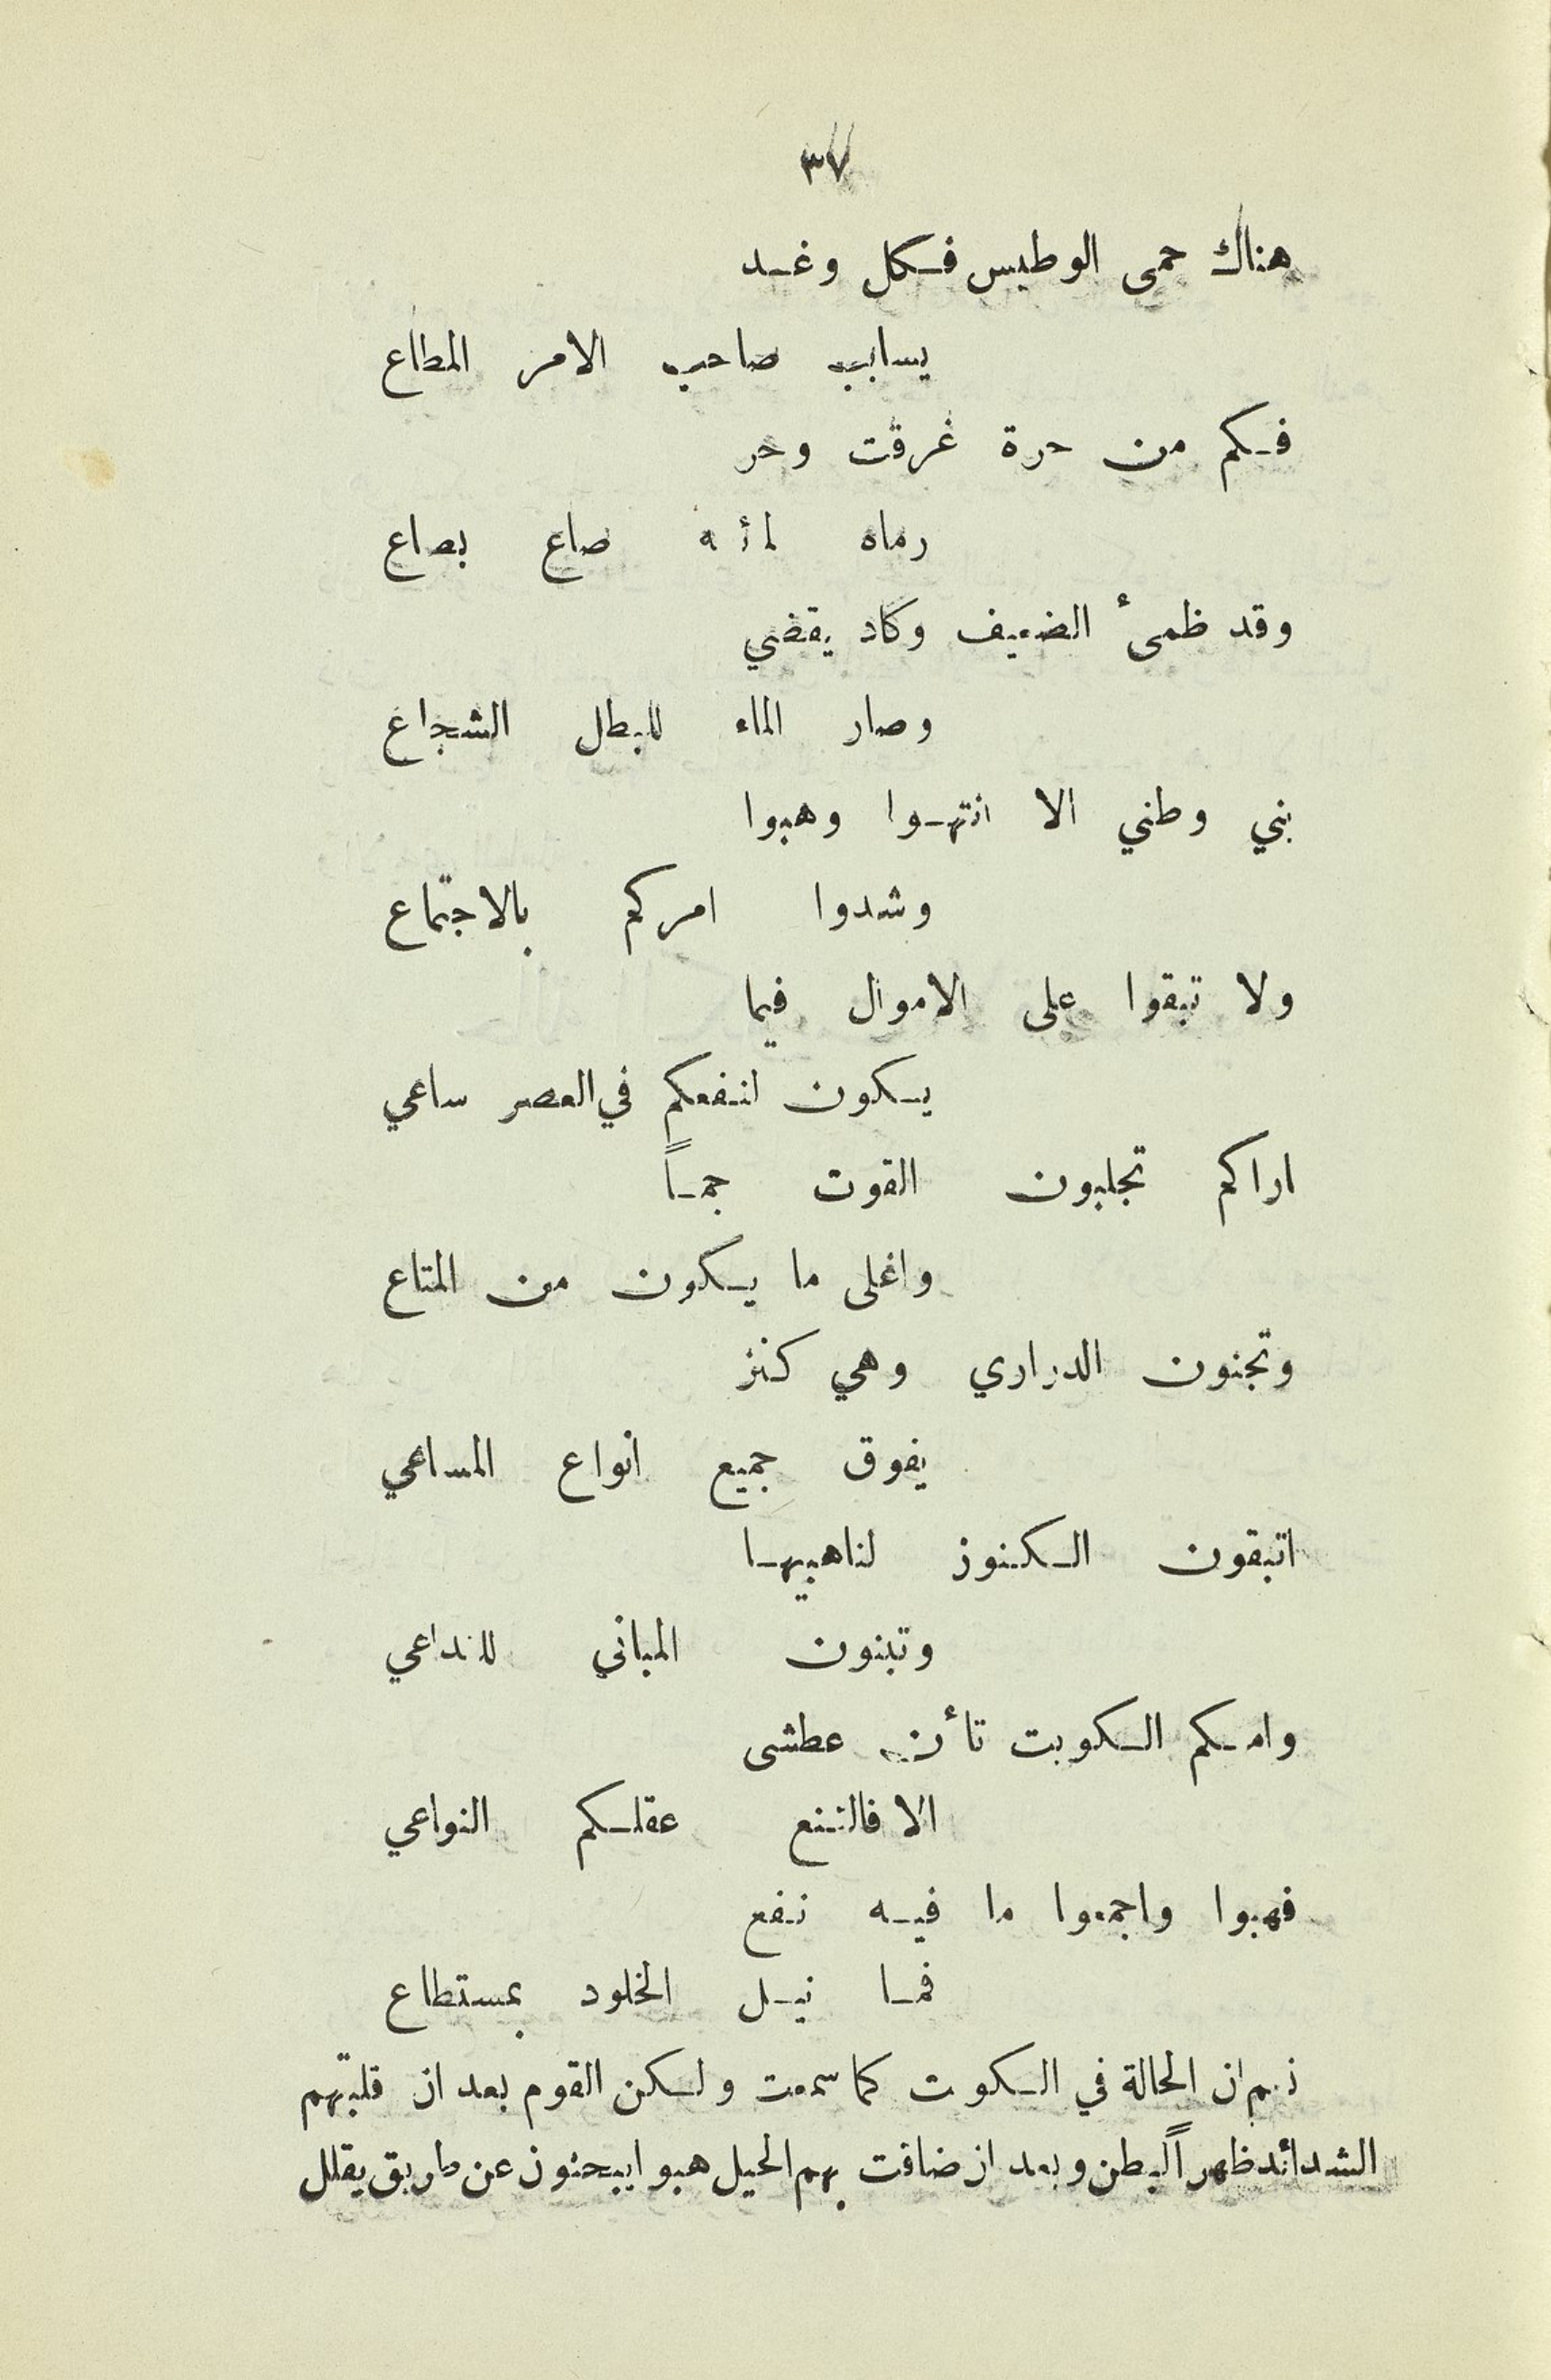 ٣٧
هناك حمى الوطيس فكل وغد
يسابب صاحب الامر المطاع
فكم من حرة غرقت وحر
رماه لمائه صاع بصاع
وقد ظمئ الضعيف وكاد يقضي
وصار الماء للبطل الشجاع
بني وطني الا انتهوا وهبوا
وشدوا امركم بالاجتماع
ولا تبقوا على الاموال فيما
يكون لنفعكم في العصر ساعي
اراكم تجلبون القوت جماً
واغلى ما يكون من المتاع
وتجنون الدراري وهي كنز
يفوق جميع انواع المساعي
اتبقون الكنوز لناهبيها
وتبنون المباني للتداعي
وامكم الكويت تأن عطشى
الا فالتنع عقلكم النواعي
فهبوا واجمعوا ما فيه نفع
فما نيل الخلود بمستطاع
نعم ان الحالة في الكوت كما سمعت ولكن القوم بعد ان قلبتهم
الشدائد ظهراً لبطن وبعد ان ضاقت بهم الحيل هبوا يبحثون عن طريق يقلل